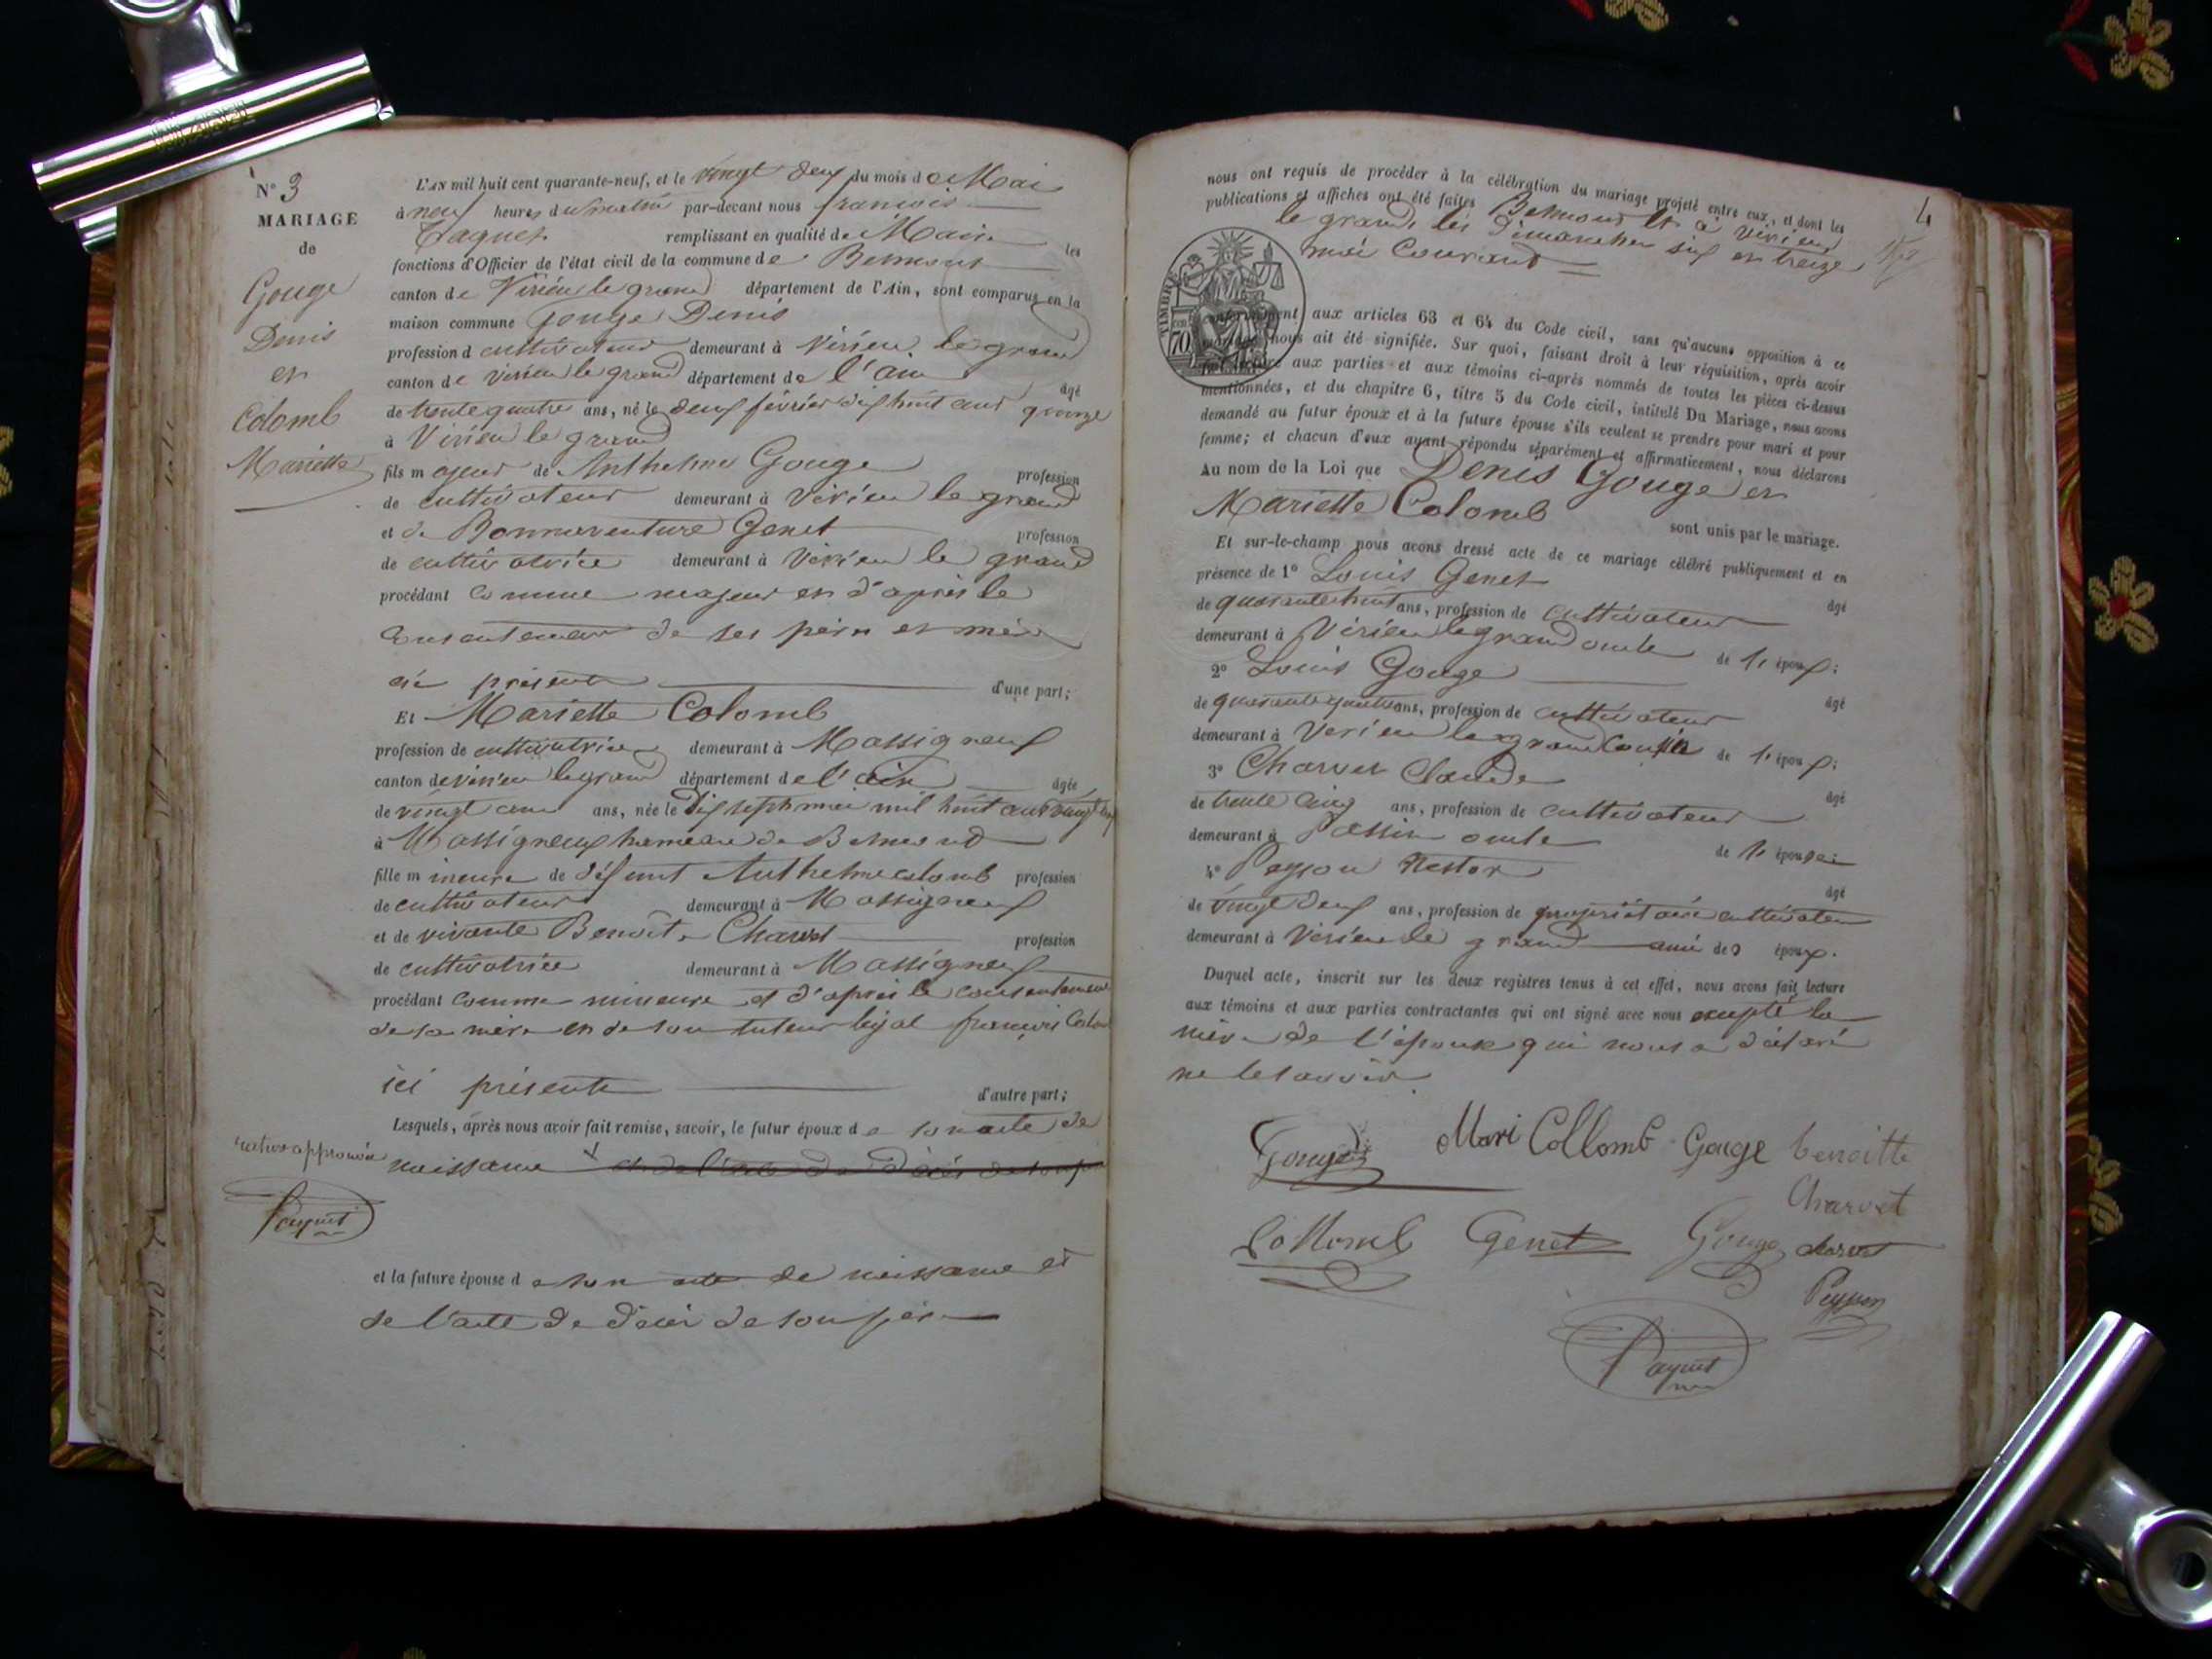 N° 3
MARIAGE
de
Gouge
Denis
et
Colomb
Mariette
L'AN mil huit cent quarante-neuf, et le vingt deux du mois de Mai
à neuf heures du matin par-devant nous françois
Paquet remplissant en qualité de Maire les
fonctions d'Officier de l'état civil de la commune de Belmont
canton de Virieu le grand département de l'Ain, sont comparus en la
maison commune Gouge Denis
profession d cultivateur demeurant à Virieu le grand
canton de virieu le grand département de l'ain âgé
de trente quatre ans, né le deux février dix huit cent quinze
à Virieu le grand
fils majeur de Anthelme Gouge profession
de cultivateur demeurant à Virieu le grand
et de Bonnaventure Genet profession
de cultivatrice demeurant à Virieu le grand
procédant comme majeur et d'après le
consentement de ses père et mère
ici présents d'une part;
Et Mariette Colomb
profession de cultivatrice demeurant à Massigneux
canton de virieu le grand département de l'ain âgée
de vingt ans, née le dix sept mai mil huit cent vingt
à Massigneux hameau de Belmont
fille mineure de défunt Anthelme colomb profession
de cultivateur demeurant à Massigneux
et de vivante Benoite Charvet profession
de cultivatrice demeurant à Massigneux
procédant comme mineure et d'après le consentement
de sa mère et de son tuteur légal françois Colomb
ici présents d'autre part;
Lesquels, après nous avoir fait remise, savoir, le futur époux de son acte de
naissance et de l'acte de décès de son père
rature approuvée
Paquet
et la future épouse de son acte de naissance et
de l'acte de décès de son père
4
nous ont requis de procéder à la célébration du mariage projeté entre eux, et dont les
publications et affiches ont été faites Belmont et à virieu
le grand, les dimanches six et treize
mai Courant
TIMBRE
70
conformément aux articles 63 et 64 du Code civil, sans qu'aucune opposition à ce
nous ait été signifiée. Sur quoi, faisant droit à leur réquisition, après avoir
aux parties et aux témoins ci-après nommés de toutes les pièces ci-dessus
mentionnées, et du chapitre 6, titre 5 du Code civil, intitulé Du Mariage, nous avons
demandé au futur époux et à la future épouse s'ils veulent se prendre pour mari et pour
femme; et chacun d'eux ayant répondu séparément et affirmativement, nous déclarons
Au nom de la Loi que Denis Gouge et
Mariette Colomb sont unis par le mariage.
Et sur-le-champ nous avons dressé acte de ce mariage célébré publiquement et en
présence de 1° Louis Genet âgé
de quarante huit ans, profession de cultivateur
demeurant à Virieu le grand oncle de l' époux;
2° Louis Gouge âgé
de quarante quatre ans, profession de cultivateur
demeurant à Virieu le grand Cousin de l' époux;
3° Charvet Claude âgé
de trente cinq ans, profession de cultivateur
demeurant à Passin oncle de l' épouse
4° Peysson Nestor âgé
de vingt deux ans, profession de propriétaire cultivateur
demeurant à Virieu le grand ami des époux.
Duquel acte, inscrit sur les deux registres tenus à cet effet, nous avons fait lecture
aux témoins et aux parties contractantes qui ont signé avec nous excepté la
mère de l'époux qui nous a déclaré
ne le savoir
Gouge Mari Collomb Gouge benoitte
Charvet
Collomb Genet Gouge charvet
Peysson
Paquet